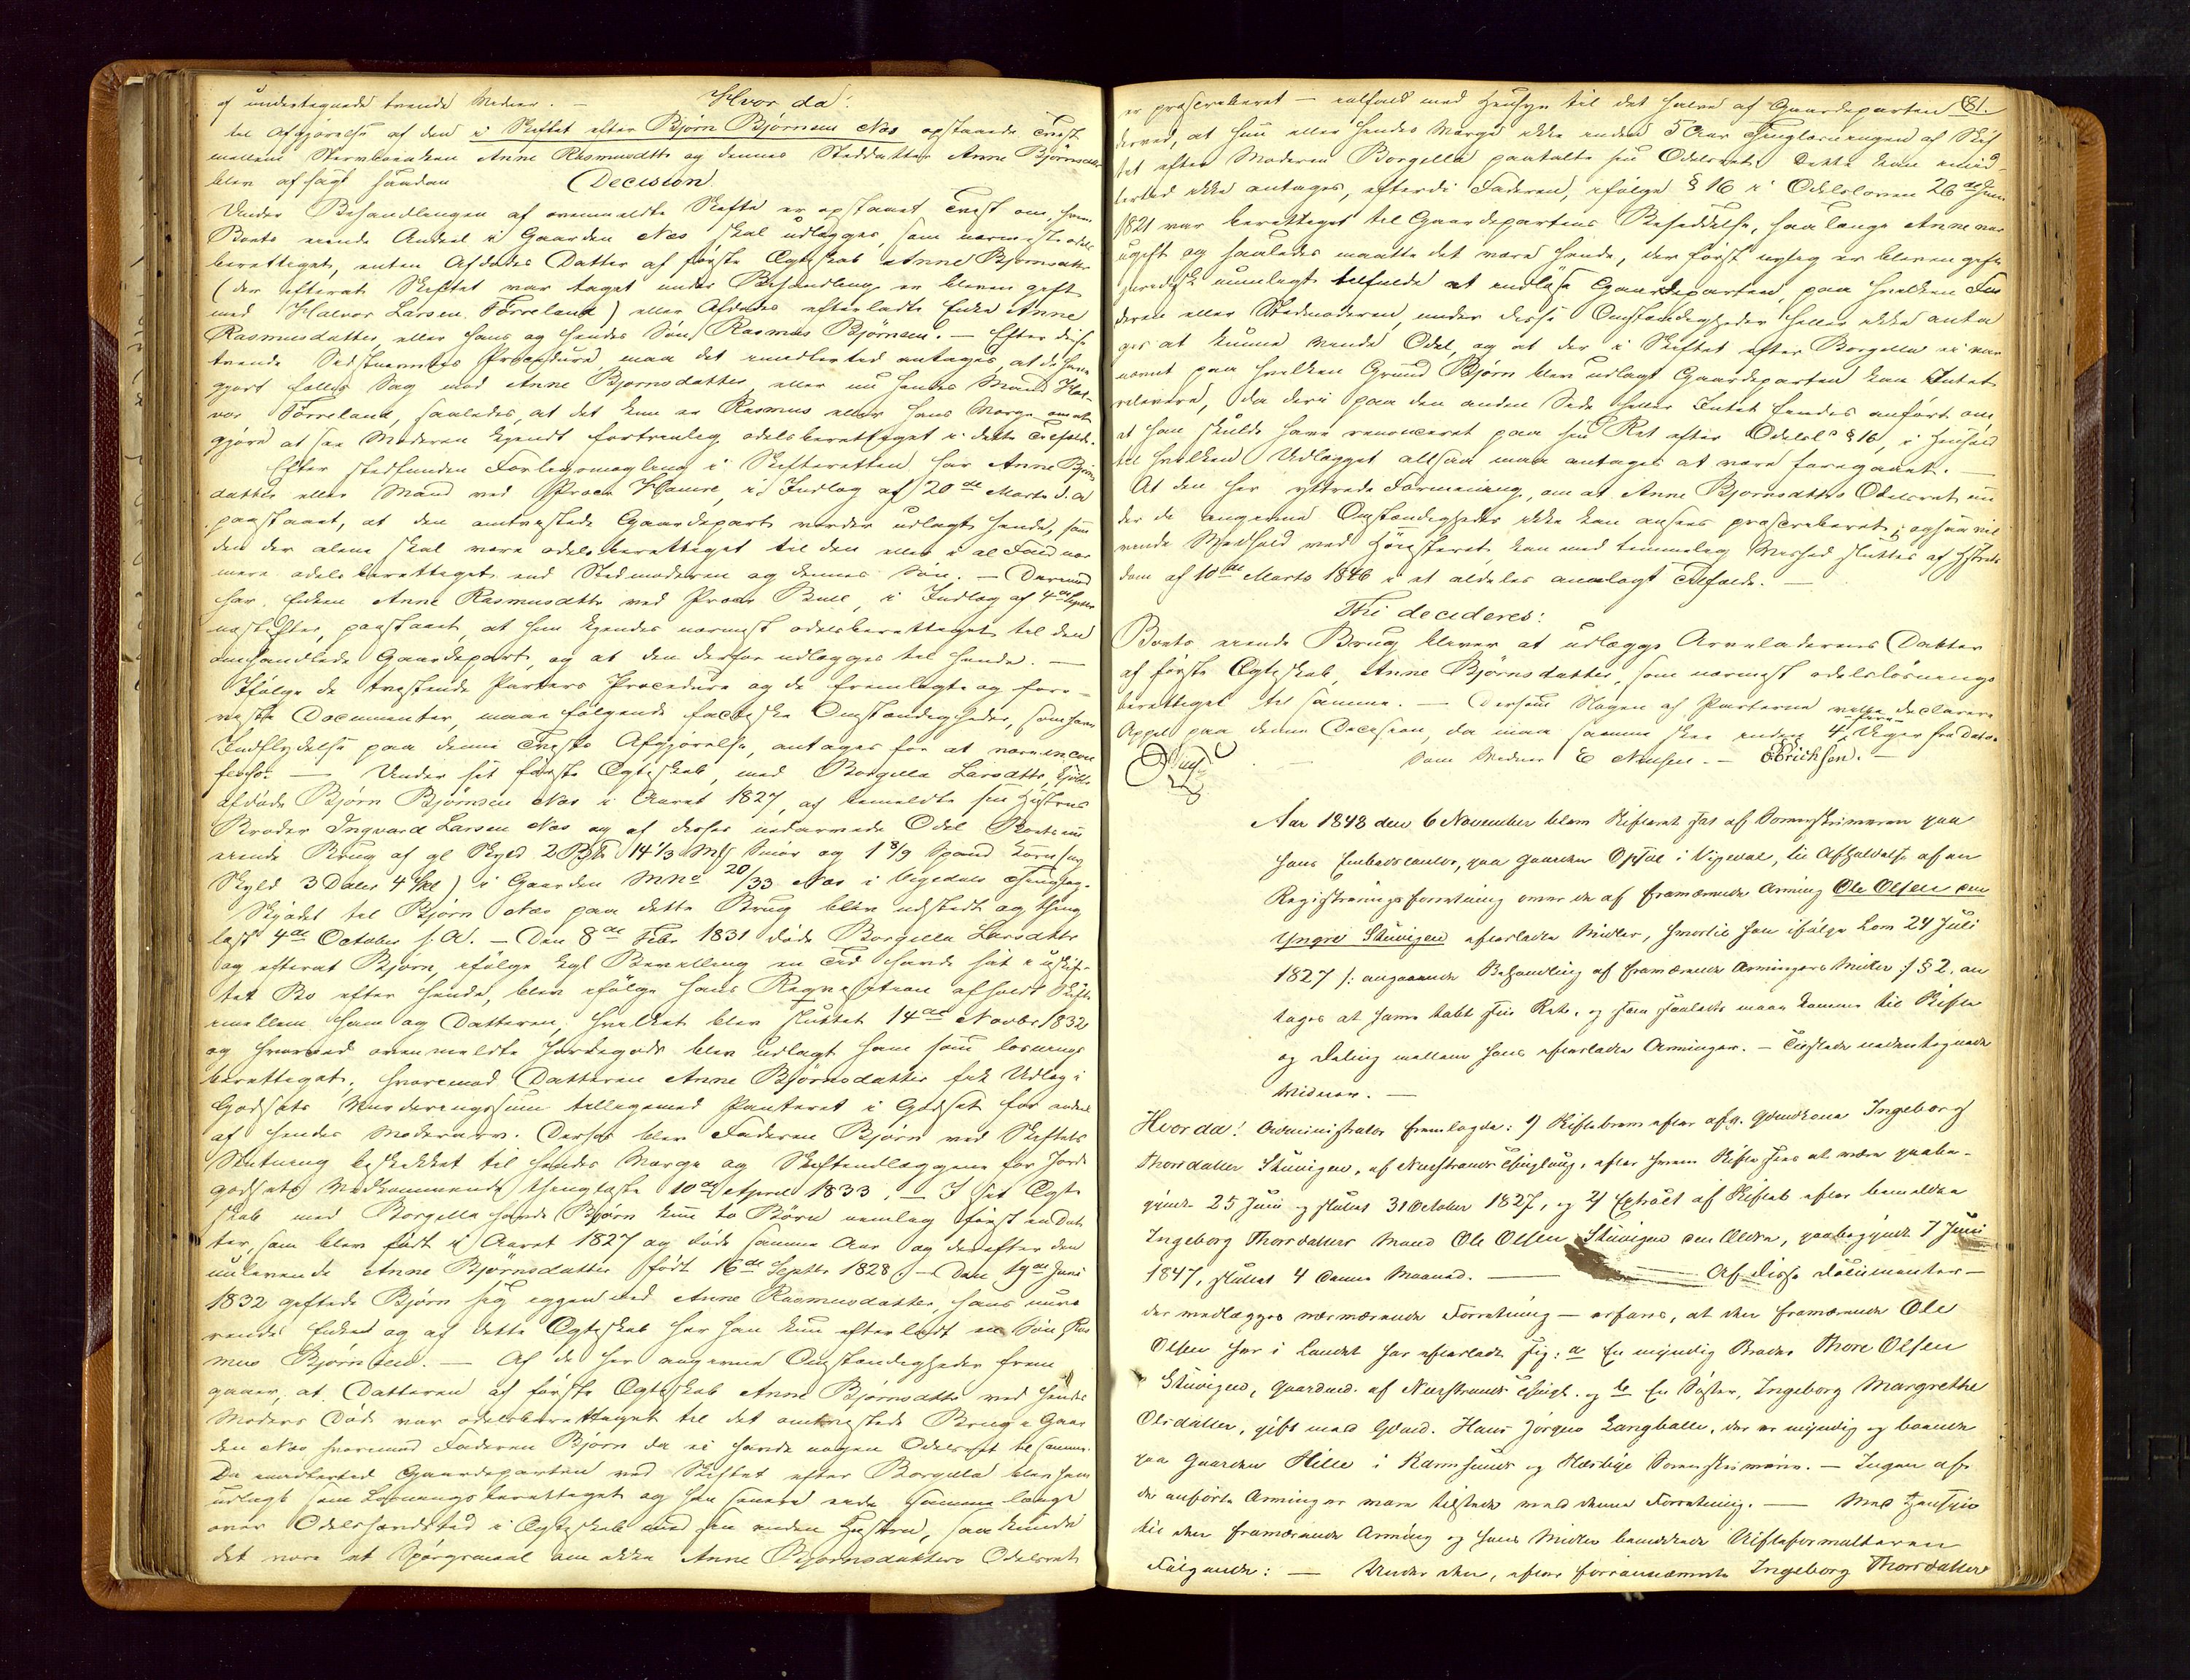 af undertegnede tvende Vidner. — Hvor da:
til Afgjørelse af den i Skiftet efter Bjørn Bjørnsen Næs opstaaede Tvist
mellem Stervboenken Anne Rasmusdttr og dennes Steddatter Anne Bjørnsdttr
blev afsagt saadan Decision
Under Behandlingen af ovenmeldte Skifte er opstaaet Tvist om, hvem
Boets eiende Andeel i Gaarden Næs skal udlægges, som nærmeste odels
berettiget, enten Afdødes Datter af første Egteskab Anne Bjørnsdttr
(der efterat Skiftet var taget under Behandling er bleven gift
med Halvor Larsen Førreland) eller Afdødes efterladte Enke Anne
Rasmusdatter, eller hans og hendes Søn Rasmus Bjørnsen. — Efter disse
tvende Sidstnævntes Procedure, maa det imidlertid antages, at de have
gjort fælles Sag mod Anne Bjørnsdatter, eller nu hendes Mand Hal-
vor Førreland, saaledes, at det kun er Rasmus eller hans Værge om at
gjøre at faa Moderen kjendt fortrinlig odelsberettiget i dette Tilfælde.
Efter stedfunden Forligsmægling i Skifteretten har Anne Bjørns
datter eller Mand ved Procr Hamre, i Indlæg af 20de Marts d. A.
paastaaet, at den omtvistede Gaardepart vorder udlagt hende, som
den der alene skal være odelsberettiget til den eller i al Fald nær
mere odelsberettiget end Stedmoderen og dennes Søn. — Derimod
har Enken Anne Rasmusdttr ved Procr Bull, i Indlæg af 4de Septbr
næstefter, paastaaet, at hun kjendes nærmest odelsberettiget til den
omhandlede Gaardepart, og at den derfor udlægges til hende. —
Ifølge de tvistende Parters Procedure og de fremlagte og fore-
viste Documenter, maae følgende factiske Omstændigheder, som have
Indflydelse paa denne Tvists Afgjørelse, antages for at være in con
fesso: — Under sit første Egteskab, med Borgilla Larsdttr, kjøbte
afdøde Bjørn Bjørnsen Næs i Aaret 1827, af bemeldte sin Hustrues
Broder Ingvard Larsen Næs og af dennes nedarvede Odel Boets nu
eiende Brug af gl Skyld 2 Bpd 14 1/3 Mk Smør og 1 8/9 Spand Korn (ny
Skyld 3 Daler 4 Skl) i Gaarden MNo 20/33 Næs i Vigedals Thinglag.
Skjødet til Bjørn Næs paa dette Brug blev udstedt og thing
læst 4de October s. A. — Den 8de Febr 1831 døde Borgilla Larsdttr
og efterat Bjørn, ifølge kgl Bevilling en Tid havde sat i uskif-
tet Bo efter hende, blev ifølge hans Reqvisition afholdt Skifte
imellem ham og Datteren, hvilket blev sluttet 14de Novbr 1832
og hvorved ovenmeldte Jordegods blev udlagt ham som løsnings
berettiget, hvorimod Datteren Anne Bjørnsdatter fik Udlæg i
Godsets Vurderingssum tilligemed Panteret i Godset for andel
af hendes Mødrenarv. Derhos blev Faderen Bjørn ved Skiftets
Slutning beskikket til hendes Værge og Skifteudlæggene for Jorde
godsets Vedkommende thinglæste 10de April 1833. — I sit Egte
skab med Borgilla havde Bjørn kun to Børn nemlig først en Dat
ter, som blev født i Aaret 1827 og døde samme Aar og derefter den
nulevende Anne Bjørnsdatter født 16de Septbr 1828. — Den 19de Juni
1832 giftede Bjørn sig igjen med Anne Rasmusdatter, hans nuvæ
rende Enke og af dette Egteskab har han kun efterladt en Søn Ras
mus Bjørnsen. — Af de her angivne Omstændigheder frem
gaaer, at Datteren af første Egteskab Anne Bjørnsdttr ved hendes
Moders Død var odelsberettiget til det omtvistede Brug i Gaar
den Næs hvorimod Faderen Bjørn da ei havde nogen Odelsret til samme.
Da imidlertid Gaardeparten ved Skiftet efter Borgilla blev ham
udlagt som Løsningsberettiget og han senere eiede samme længe
over Odelshævdstid i Egteskab med sin anden Hustru, saa kunde
det være et Spørgsmaal om ikke Anne Bjørnsdatters Odelsret
81.
er præscriberet — ialfald med Hensyn til det halve af Gaardeparten
derved, at hun eller hendes Værge ikke inden 5 Aar Thinglæsningen af Skif
tet efter Moderen Borgilla paatalte sin Odelsret. Dette kan imid-
lertid ikke antages, efterdi Faderen, ifølge § 16 i Odelsloven 26de Juni
1821 var berettiget til Gaardepartens Besiddelse, saalænge Anne var
ugift og saaledes maatte det være hende, der først nylig er bleven gift
juridisk umuligt tilfulde at indløse Gaardeparten, paa hvilken Fa
deren eller Stedmoderen, under disse Omstændigheder heller ikke anta
ges at kunne vinde Odel, og at der i Skiftet efter Borgilla ei var
nævnt paa hvilken Grund Bjørn blev udlagt Gaardeparten kan Intet
relevere, da deri paa den anden Side heller Intet findes anført om,
at han skulde have renonceret paa sin Ret efter Odelsl. § 16, i Henhold
til hvilken Udlægget altsaa maa antages at være foregaaet. —
At den her yttrede Formening, om at Anne Bjørnsdttrs Odelsret un
der de angivne Omstændigheder ikke kan ansees præscriberet, ogsaa vil
vinde Medhold ved Høiesteret, kan med temmelig Vished sluttes af Hstrets
dom af 10de Marts 1846 i et aldeles analogt Tilfælde. —
Thi decideres:
Boets eiende Brug bliver at udlægge Arveladerens Datter
af første Egteskab, Anne Bjørnsdatter, som nærmest odelsløsnings
berettiget til samme. — Dersom Nogen af Parterne ville declarere
Appel paa denne Decision, da maa samme skee inden 4 fire Uger fra Dato.
Som Vidner E Nilsen. — Erichsen. —
Aar 1848 den 6 November blev Skifteret sat af Sorenskriveren paa
hans Embedscontor, paa Gaarden Opsal i Vigedal, til Afholdelse af en
Registreringsforretning over de af fraværende Arving Ole Olsen den
Yngre Stuvigen efterladte Midler, hvortil han ifølge Lov 24 Juli
1827 /: angaaende Behandling af fraværende Arvingers Midler :/ § 2, an
tages at have tabt sin Ret, og som saaledes maae komme til Skifte
og Deling mellem hans efterladte Arvinger. — Tilstede undertegnede
Vidner. —
Hvorda! Administrator fremlagde: 1) Skiftebrev efter afg. Gdmdkone Ingeborg
Thorsdatter Stuvigen, af Nerstrands Thinglaug, efter hvem Skifte sees at være paabe-
gyndt 25 Juni og sluttet 31 October 1827, og 2) Extract af Skiftet efter bemeldte
Ingeborg Thorsdatters Mand Ole Olsen Stuvigen den Ældre, paabegyndt 7 Juni
1847, sluttet 4 denne Maaned. — Af disse Documenter —
der vedlægges nærværende Forretning — erfares, at den fraværende Ole
Olsen her i Landet har efterladt sig: a En myndig Broder Thore Olsen
Stuvigen, Gaardmd. af Nerstrands Thingl. og b En Søster, Ingeborg Margrethe
Olsdatter, gift med Gdmd. Hans Jørgen Langballe, der er myndig og boende
paa Gaarden Hille i Karmsunds og Hæskeje Sorenskriverie. — Ingen af
de anførte Arvinger vare tilstede ved denne Forretning. — Med Hensyn
til den fraværende Arving og hans Midler bemærkede Skifteforvalteren
Følgende: — Under den, efter forannævnte Ingeborg Thorsdatter